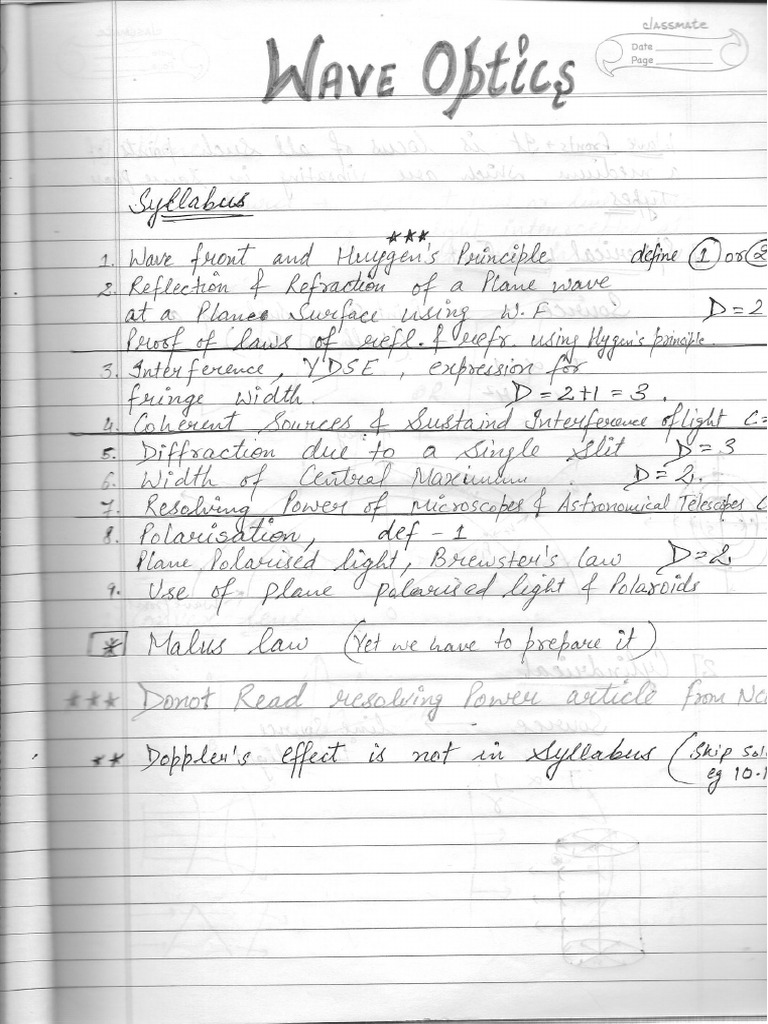 classmate
Date
Page
WAVE Optics
Syllabus
***
1. Wave front and Huygen's Principle define 1 or 2
2. Reflection & Refraction of a Plane wave
at a Plane Surface using W.F D = 2
Proof of laws of refl. & refr. using Hygen's principle.
3. Interference, YDSE, exprecsion for
fringe width. D = 2+1 = 3.
4. Coherent Sources & Sustaind Interference of light C=
5. Diffraction due to a Single Slit D = 3
6. Width of Central Maximum D = 2.
7. Resolving Power of Microscopes & Astronomical Telescopes
8. Polarisation, def - 1
Plane Polarised light, Brewster's law D = 2
9. Use of plane polarised light & Polaroids
* Malus law (Yet we have to prepare it)
*** Donot Read resolving Power article from
** Doppler's effect is not in Syllabus (Skip
eg 10.